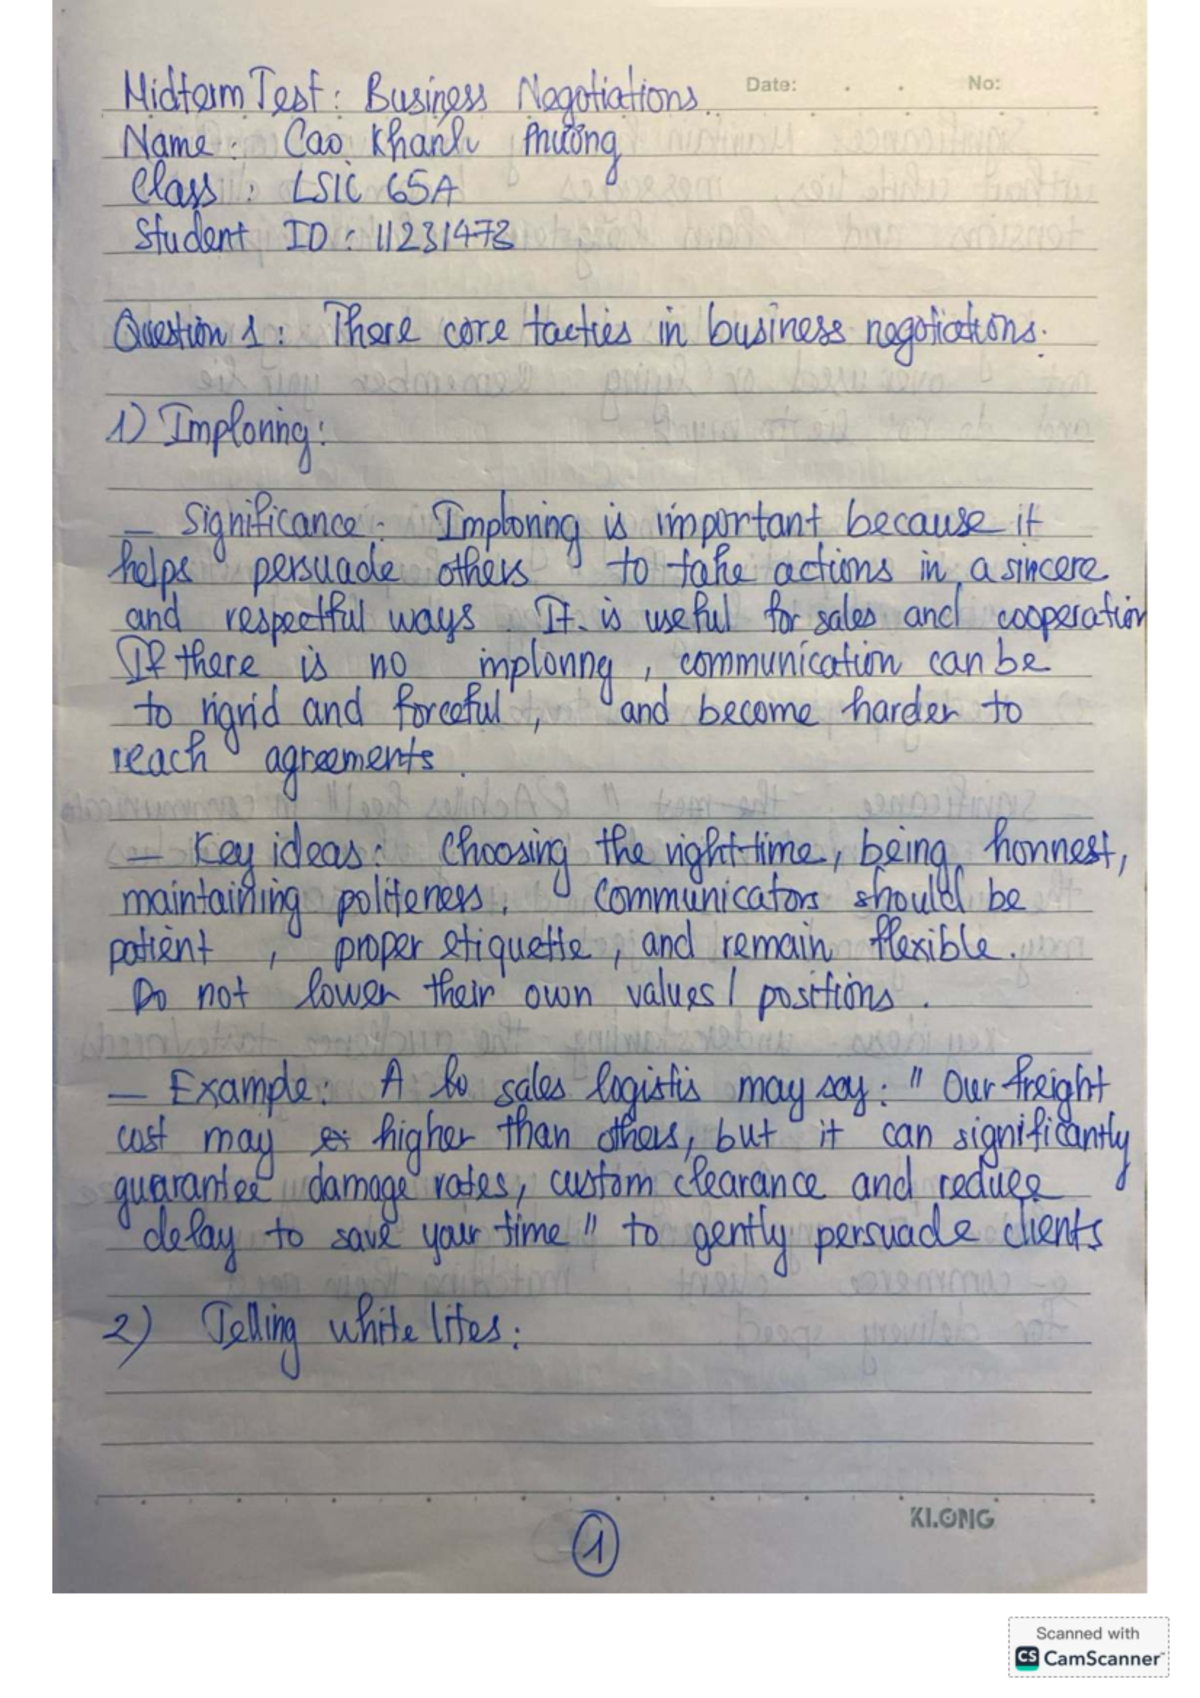 Midterm Test: Business Negotiations.
Date: . . No:
Name: Cao Khanh Phương
Class: LSIC 65A
Student ID: 11231473
Question 1: There core tacties in business negotiations.
1) Imploring:
- Significance: Imploring is important because it
helps persuade others to take actions in a sincere
and respectful ways. It is useful for sales and cooperation
If there is no imploring, communication can be
to rigrid and forceful, and become harder to
reach agreements.
- Key ideas: Choosing the right time, being honnest,
maintaining politeness. Communicators should be
patient, proper etiquette, and remain flexible.
Do not lower their own values/ positions.
- Example: A lo sales logistis may say: "Our freight
cost may higher than others, but it can significantly
guarantee damage rates, custom clearance and reduce
delay to save your time" to gently persuade clients
2) Telling white lites:
KLONG
1
Scanned with
CS CamScanner